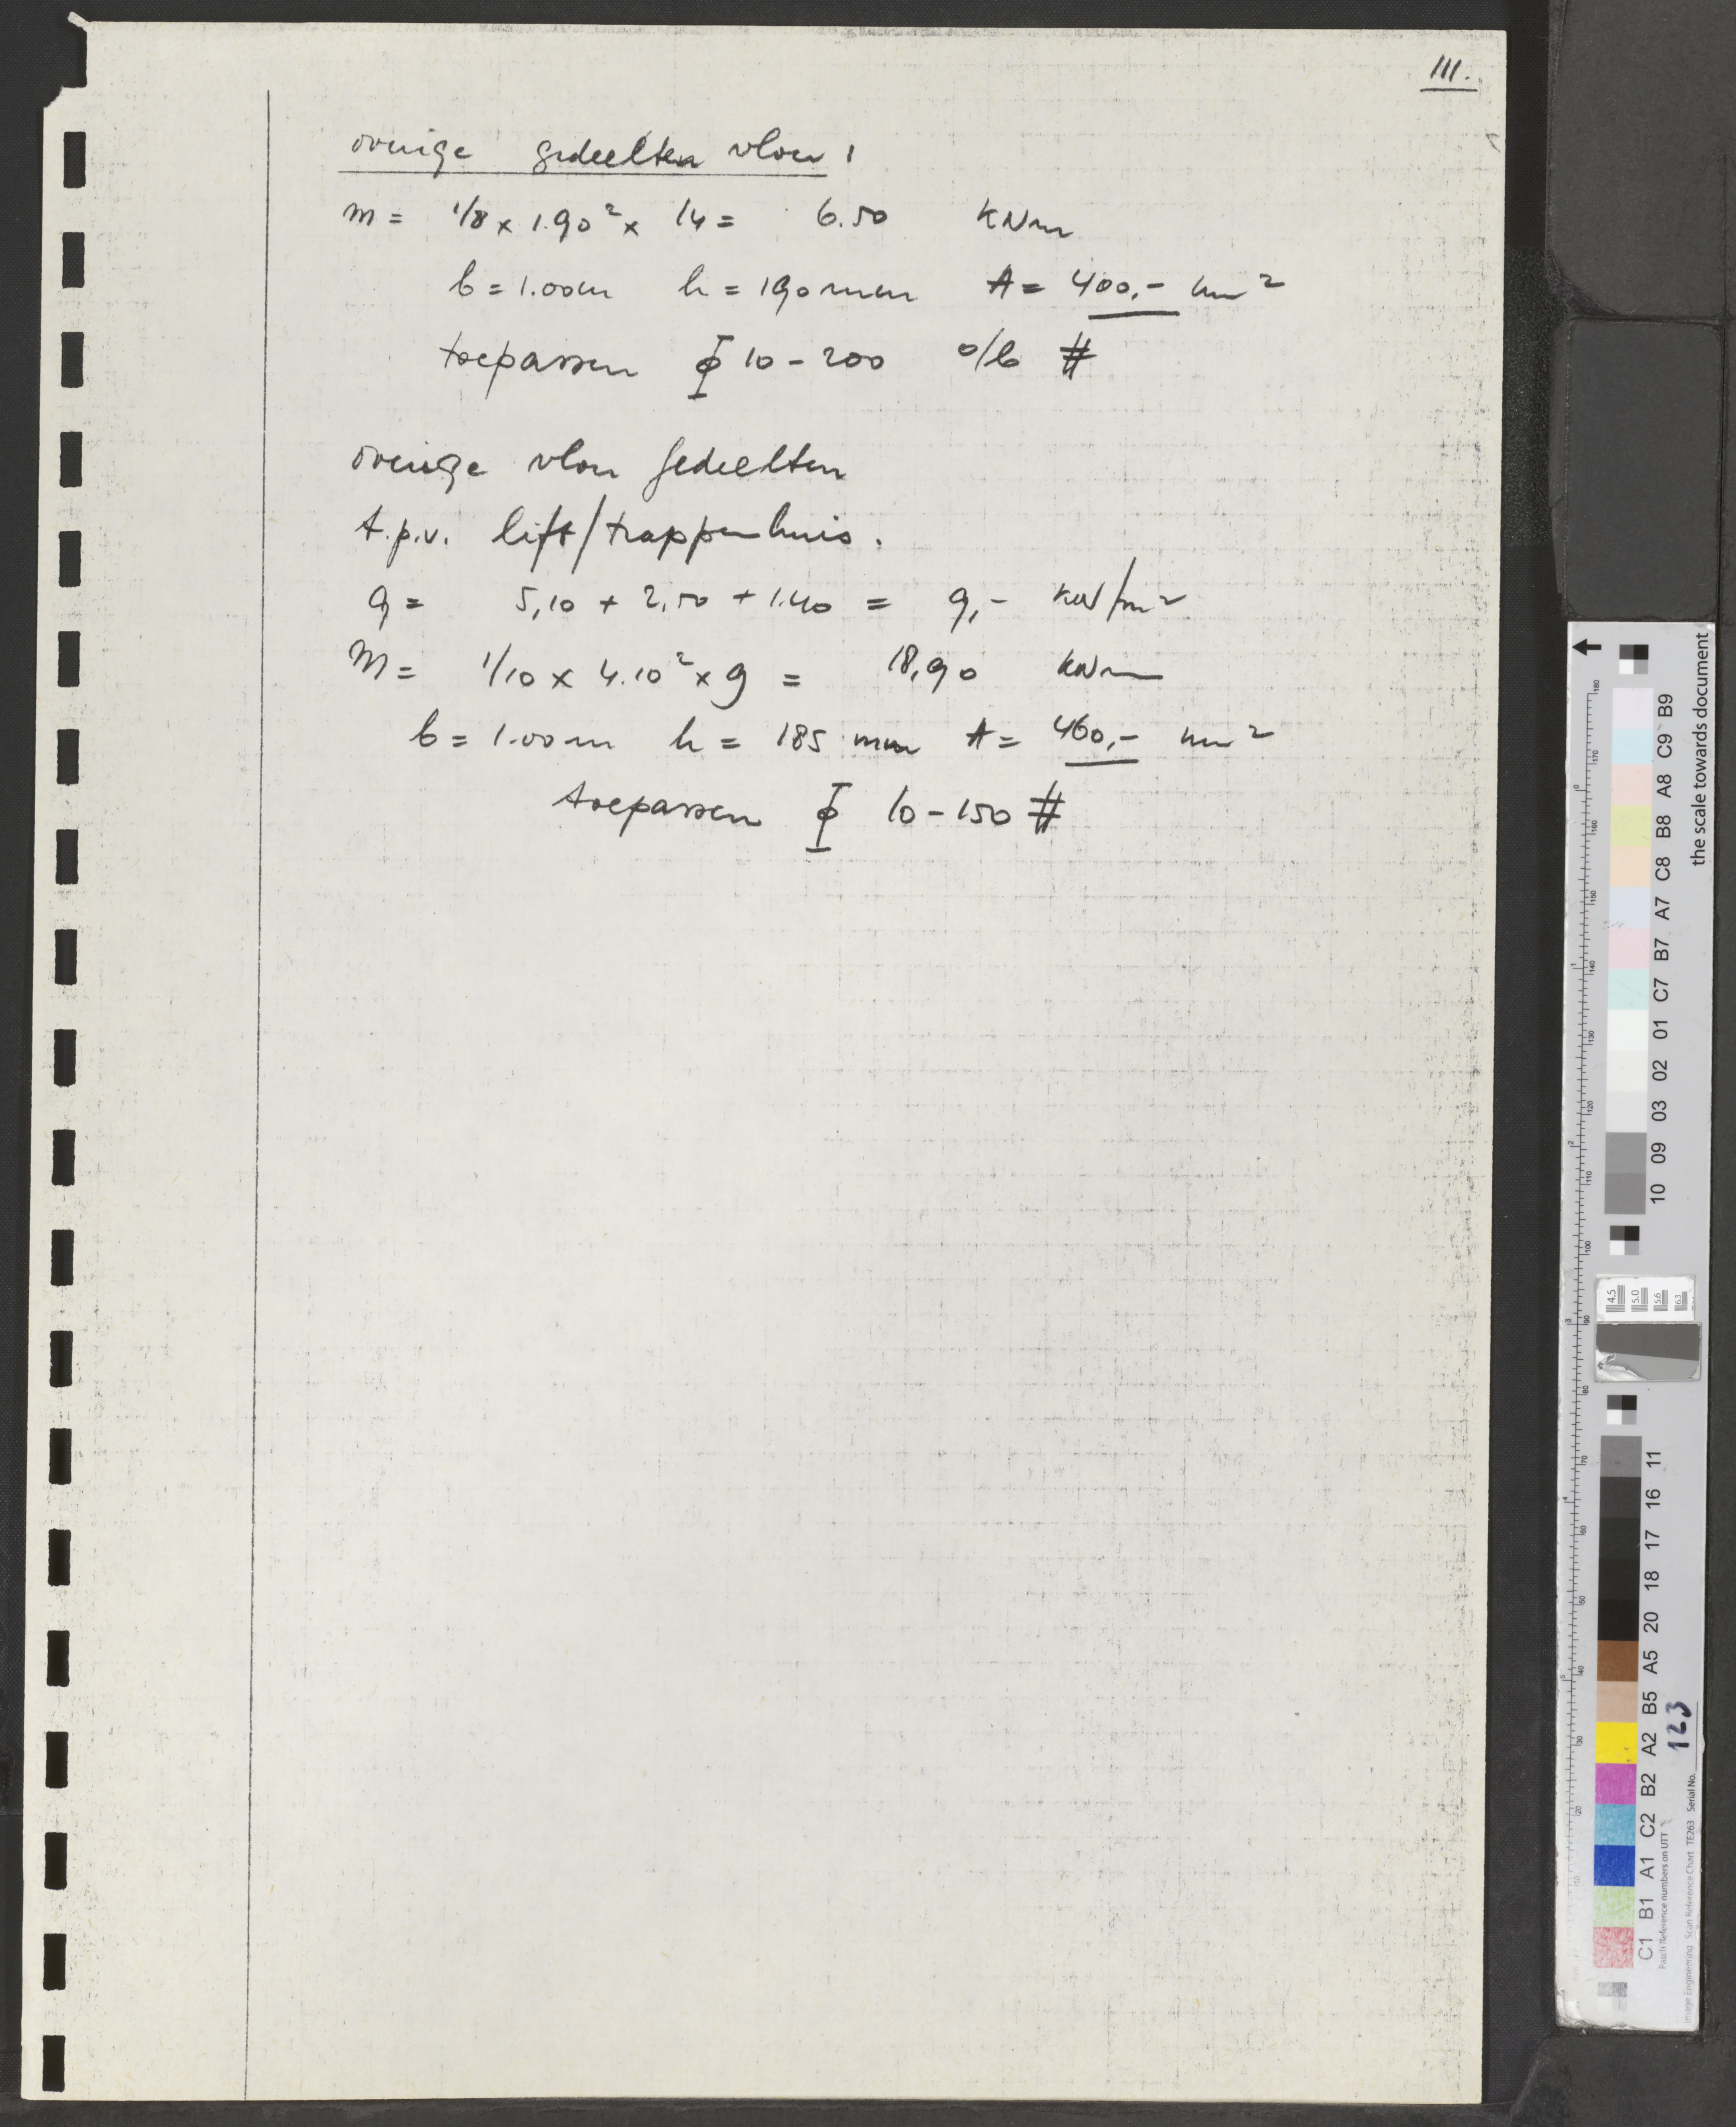 111.
overige gedeelten vloer 1
M = 1/8 x 1.90² x 14 = 6.50 kNm
b = 1.00m h = 190 mm A = 400,- mm²
toepassen ϕ 10 - 200 o/b #
overige vloer gedeelten
t.p.v. lift/trappenhuis.
q = 5,10 + 2,50 + 1.40 = 9,- kN/m²
M = 1/10 x 4.10² x 9 = 18,90 kNm
b = 1.00 m h = 185 mm A = 460,- mm²
toepassen ϕ 10 - 150 #
the scale towards document
B9 C9 A8 B8 C8 A7 B7 C7 01 02 03 09 10
180 170 160 150 140 130 120 110 100 90 80 70 60 50 40 30 20 10
4.5 5.0 5.6 6.3
11 16 17 18 20 A5 B5 A2 B2 C2 A1 B1 C1
Patch Reference numbers on UTT
Image Engineering Scan Reference Chart TE263 Serial No. 123